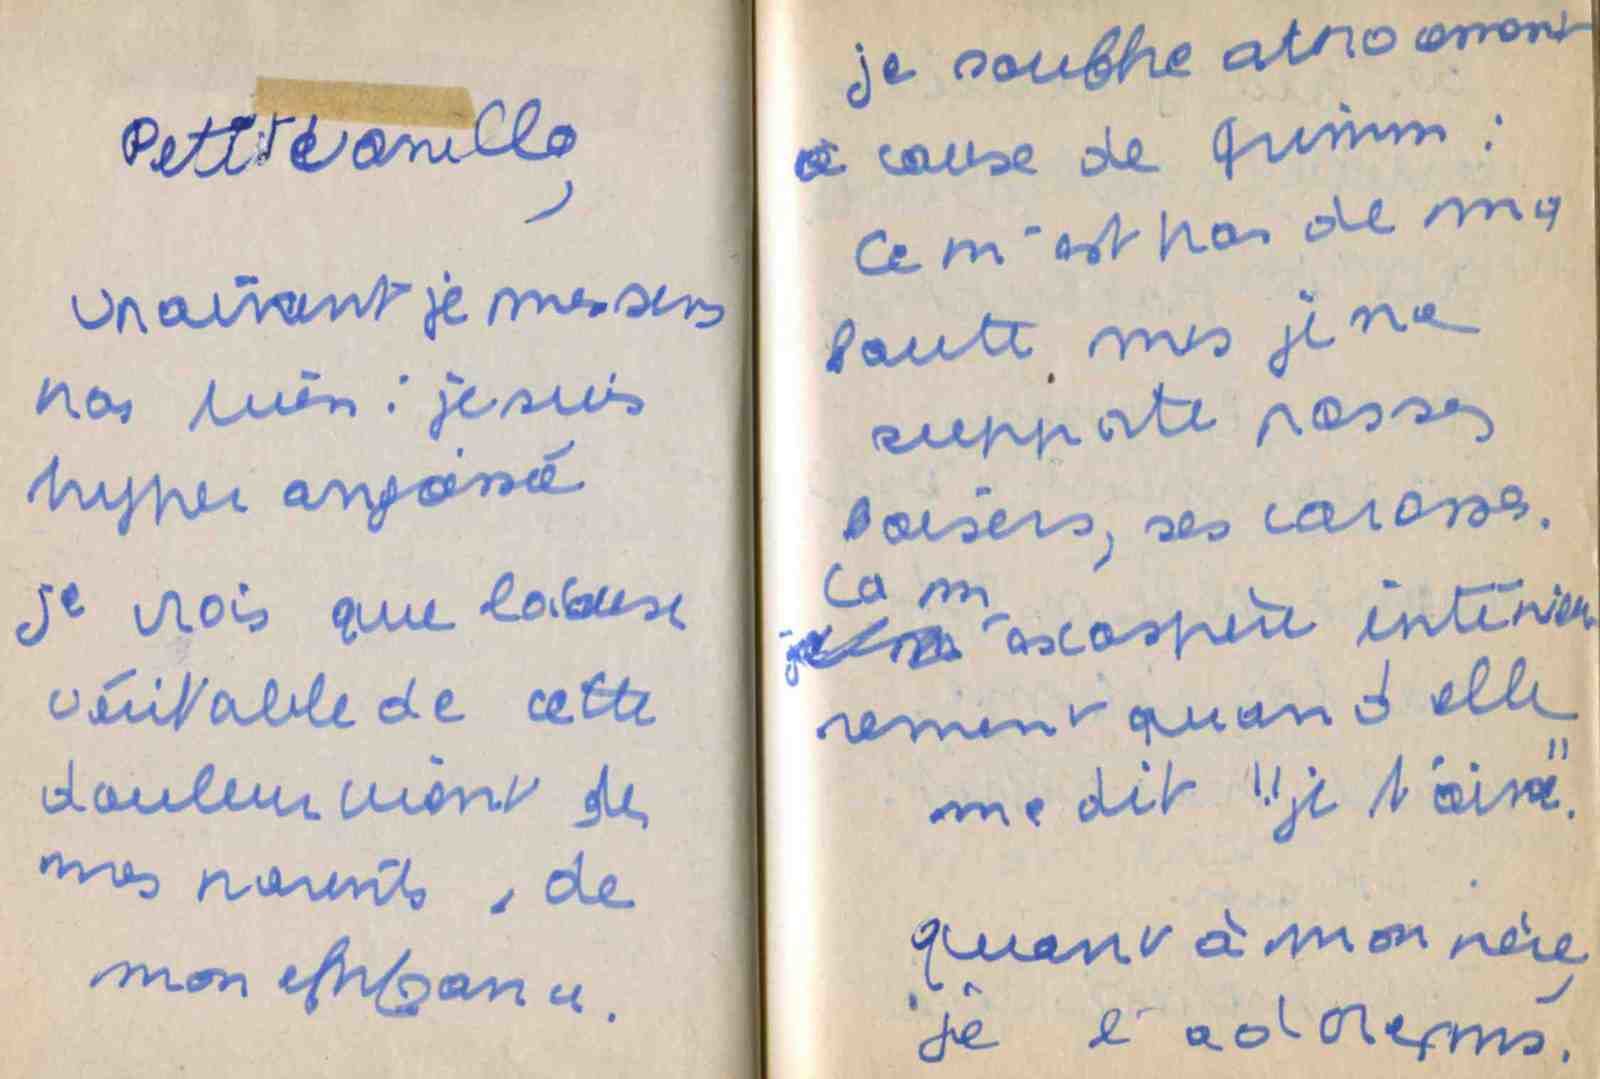 Petite vanille,
vraiment je me sens
pas bien : je suis
hyper angoissé
je crois que la cause
véritable de cette
douleur vient de
mes parents, de
mon enfance.
je souffre atrocement
à cause de :
Ce n'est pas de ma
faute mes je ne
supporte pas ses
baisers, ses caresses.
ça m
'exaspère intérieu
rement quand elle
me dit "je t'aime".
quant à mon père,
je l'